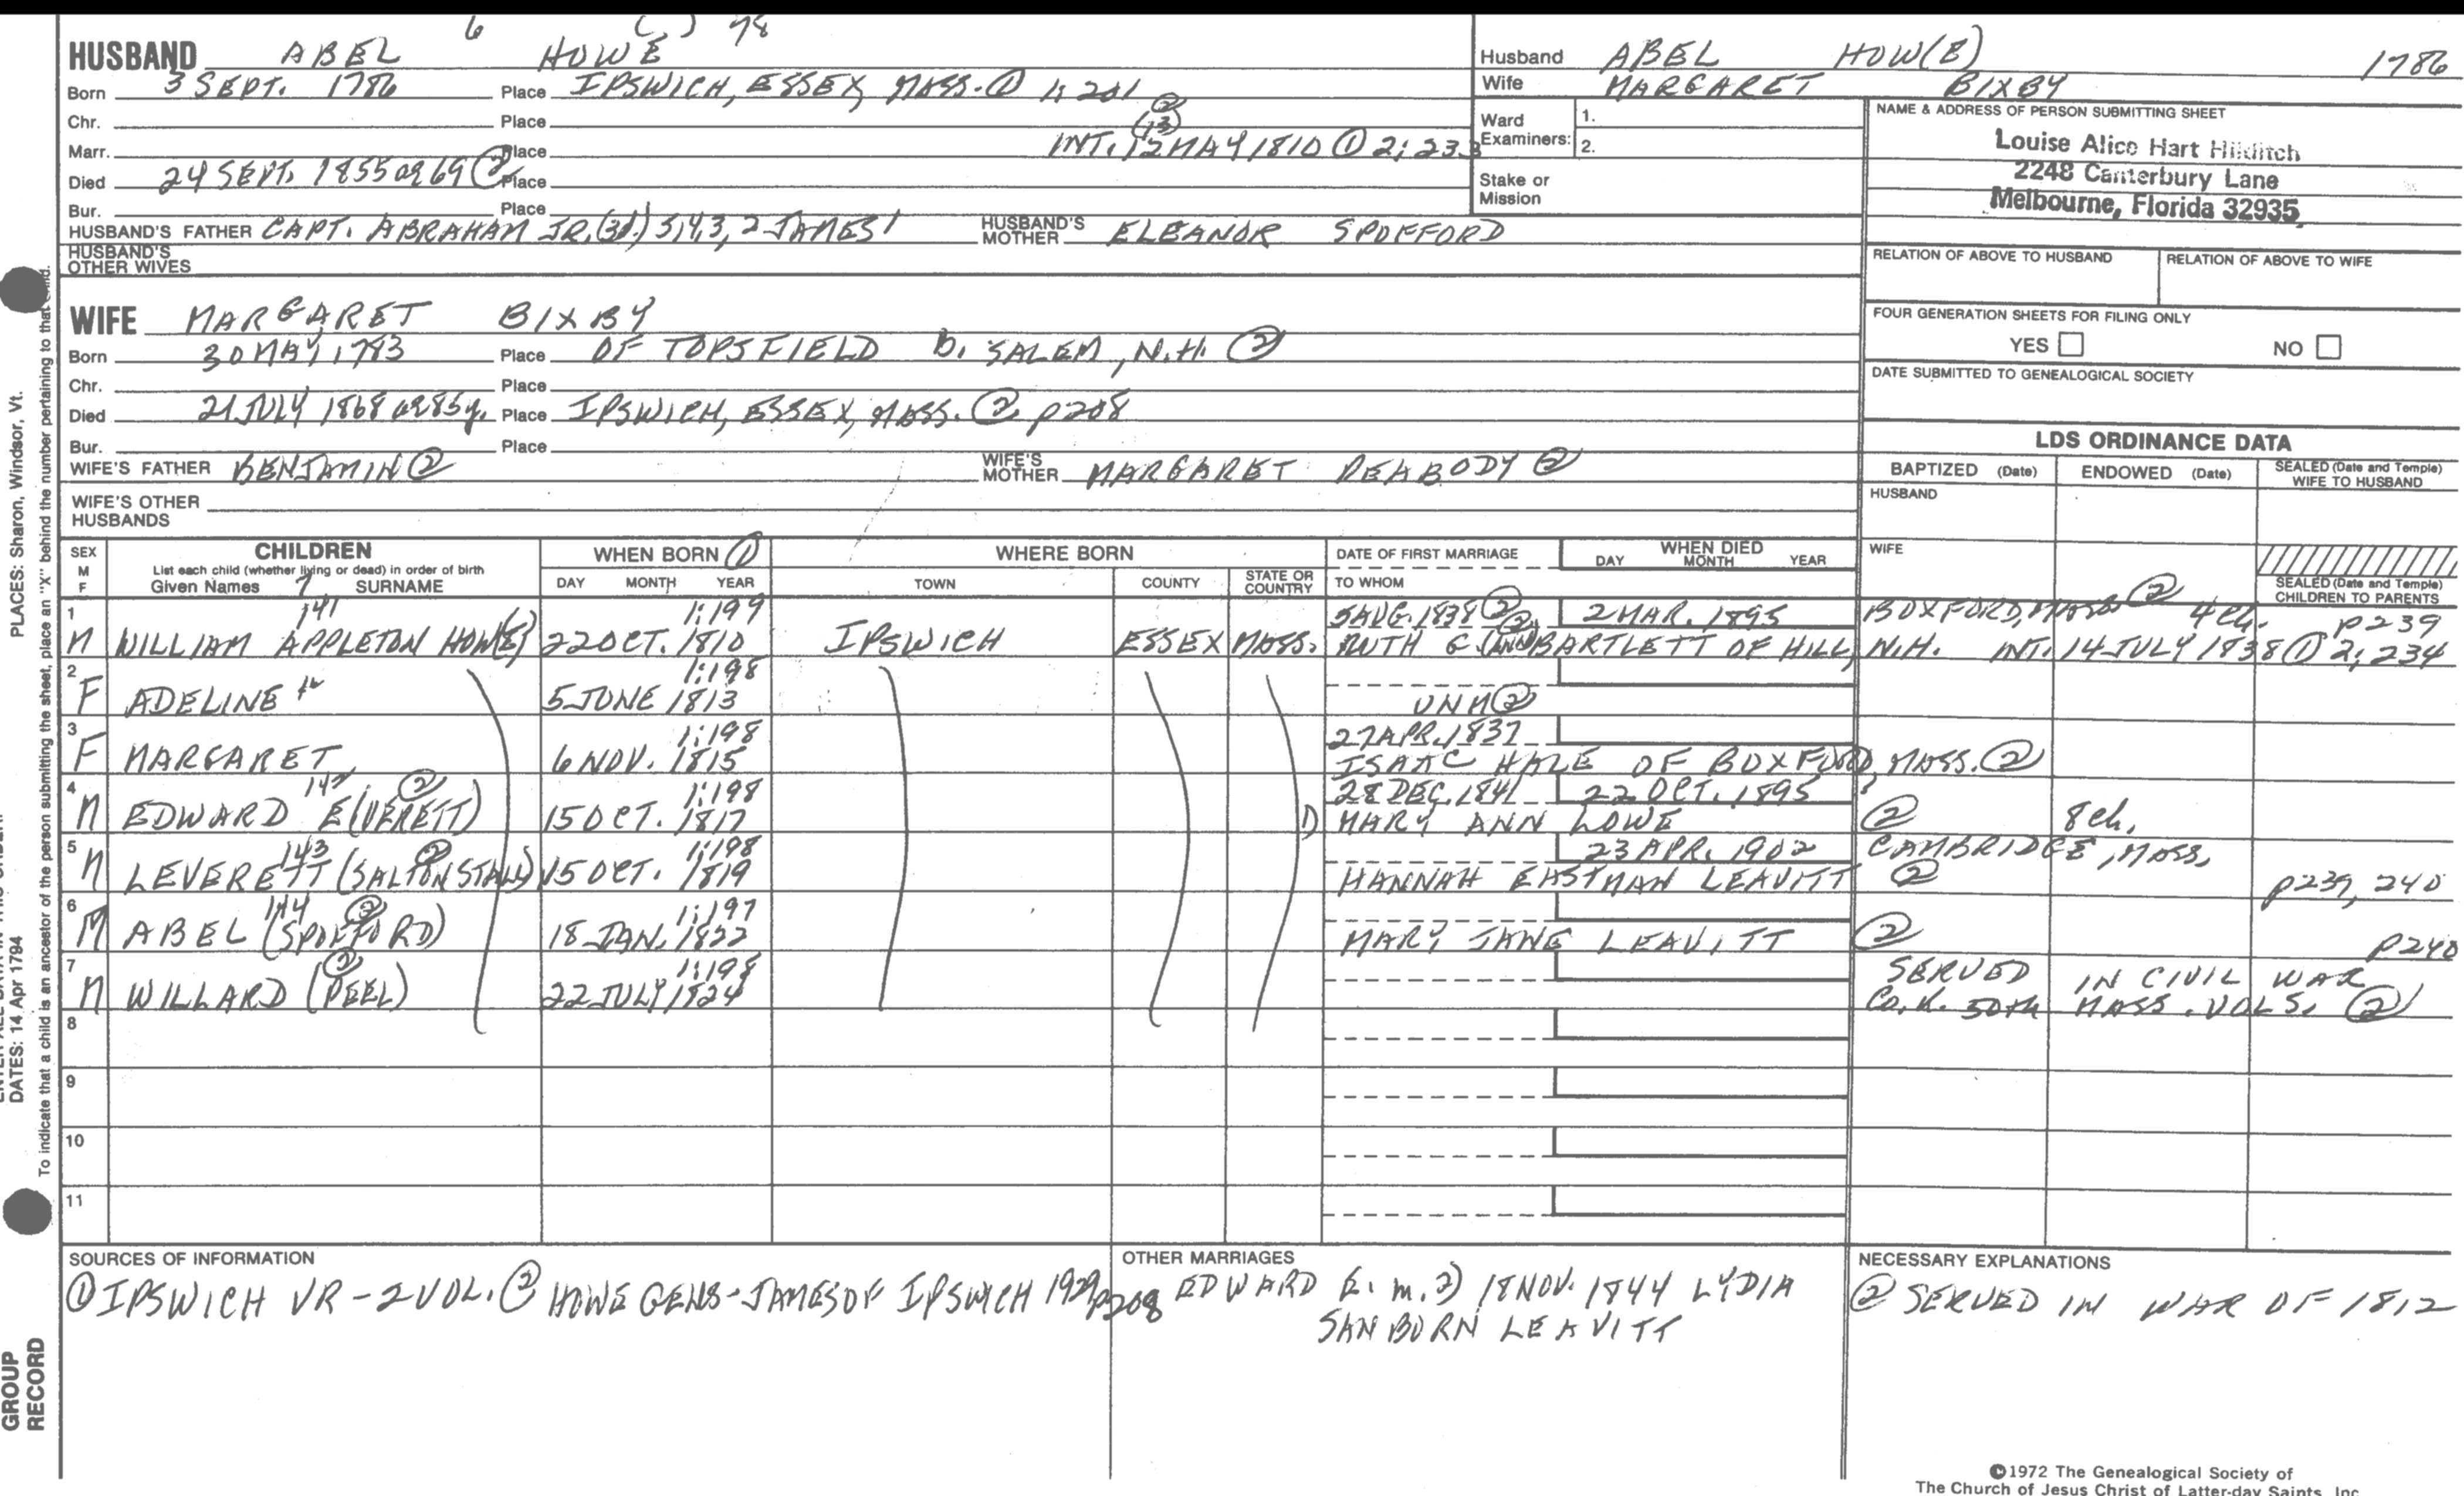 6 ( ) 78
HUSBAND ABEL HOWE
Born 3 SEPT. 1786 Place IPSWICH, ESSEX, MASS. ① 1:201
Chr. Place
Marr. Place INT. 12 (13) ② MAY 1810 ① 2:233
Died 24 SEPT. 1855 ae 69 ② Place
Bur. Place
HUSBAND'S FATHER CAPT. ABRAHAM JR. (3d.) 5,4,3,2 JAMES 1 HUSBAND'S MOTHER ELEANOR SPOFFORD
HUSBAND'S OTHER WIVES
Husband ABEL HOW(E) 1786
Wife MARGARET BIXBY
Ward Examiners: 1.
2.
Stake or Mission
NAME & ADDRESS OF PERSON SUBMITTING SHEET
Louise Alice Hart Hilditch
2248 Canterbury Lane
Melbourne, Florida 32935
RELATION OF ABOVE TO HUSBAND RELATION OF ABOVE TO WIFE
FOUR GENERATION SHEETS FOR FILING ONLY
YES NO
DATE SUBMITTED TO GENEALOGICAL SOCIETY
WIFE MARGARET BIXBY
Born 30 MAY 1783 Place OF TOPSFIELD b. SALEM, N.H. ②
Chr. Place
Died 21 JULY 1868 ae 85y. Place IPSWICH, ESSEX, MASS. ② p208
Bur. Place
WIFE'S FATHER BENJAMIN ② WIFE'S MOTHER MARGARET PEABODY ②
WIFE'S OTHER HUSBANDS
LDS ORDINANCE DATA
BAPTIZED (Date) ENDOWED (Date) SEALED (Date and Temple) WIFE TO HUSBAND
HUSBAND
WIFE
SEALED (Date and Temple) CHILDREN TO PARENTS
SEX M F CHILDREN List each child (whether living or dead) in order of birth Given Names 7 SURNAME WHEN BORN ① DAY MONTH YEAR WHERE BORN TOWN COUNTY STATE OR COUNTRY DATE OF FIRST MARRIAGE TO WHOM WHEN DIED DAY MONTH YEAR
1 141 1:199 5 AUG. 1838 ② 2 MAR. 1895 BOXFORD, MASS ② 4 ch. p239
M WILLIAM APPLETON HOW(E) 22 OCT. 1810 IPSWICH ESSEX MASS. RUTH G. (ANN) ② BARTLETT OF HILL, N.H. INT. 14 JULY 1838 ① 2:234
2 1:198
F ADELINE 5 JUNE 1813 UNM ②
3 1:198 27 APR. 1837
F MARGARET 6 NOV. 1815 ISAAC HALE OF BOXFORD, MASS. ②
4 142 ② 1:198 28 DEC. 1841 22 OCT. 1895
M EDWARD E(VERETT) 15 OCT. 1817 1) MARY ANN LOWE ② 8 ch.
5 143 ② 1:198 23 APR. 1902 CAMBRIDGE, MASS.
M LEVERETT (SALTONSTALL) 15 OCT. 1819 HANNAH EASTMAN LEAVITT ② p239, 240
6 144 ② 1:197
M ABEL (SPOFFORD) 18 JAN. 1822 MARY JANE LEAVITT ② p240
7 ② 1:198
M WILLARD (PEEL) 22 JULY 1824 SERVED IN CIVIL WAR
Co. K. 50th MASS. VOLS. ②
8
9
10
11
SOURCES OF INFORMATION
① IPSWICH VR - 2 VOL. ② HOWE GENS - JAMES OF IPSWICH 1929 p208
OTHER MARRIAGES
EDWARD E. m. 2) 18 NOV. 1844 LYDIA
SANBORN LEAVITT
NECESSARY EXPLANATIONS
② SERVED IN WAR OF 1812
©1972 The Genealogical Society of
The Church of Jesus Christ of Latter-day Saints, Inc.
PLACES: Sharon, Windsor, Vt.
DATES: 14 Apr 1794
To indicate that a child is an ancestor of the person submitting the sheet, place an "X" behind the number pertaining to that child.
GROUP
RECORD